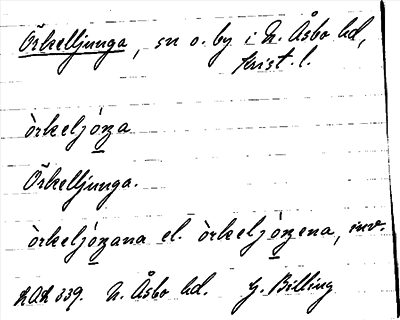 Örkelljunga, sn o. by i N. Åsbo hd,
krist. l.
òrkeljóṉa
Örkelljunga.
òrkeljóṉana el. òrkeljóṉena, inv.
N. Åsbo hd. G. Billing